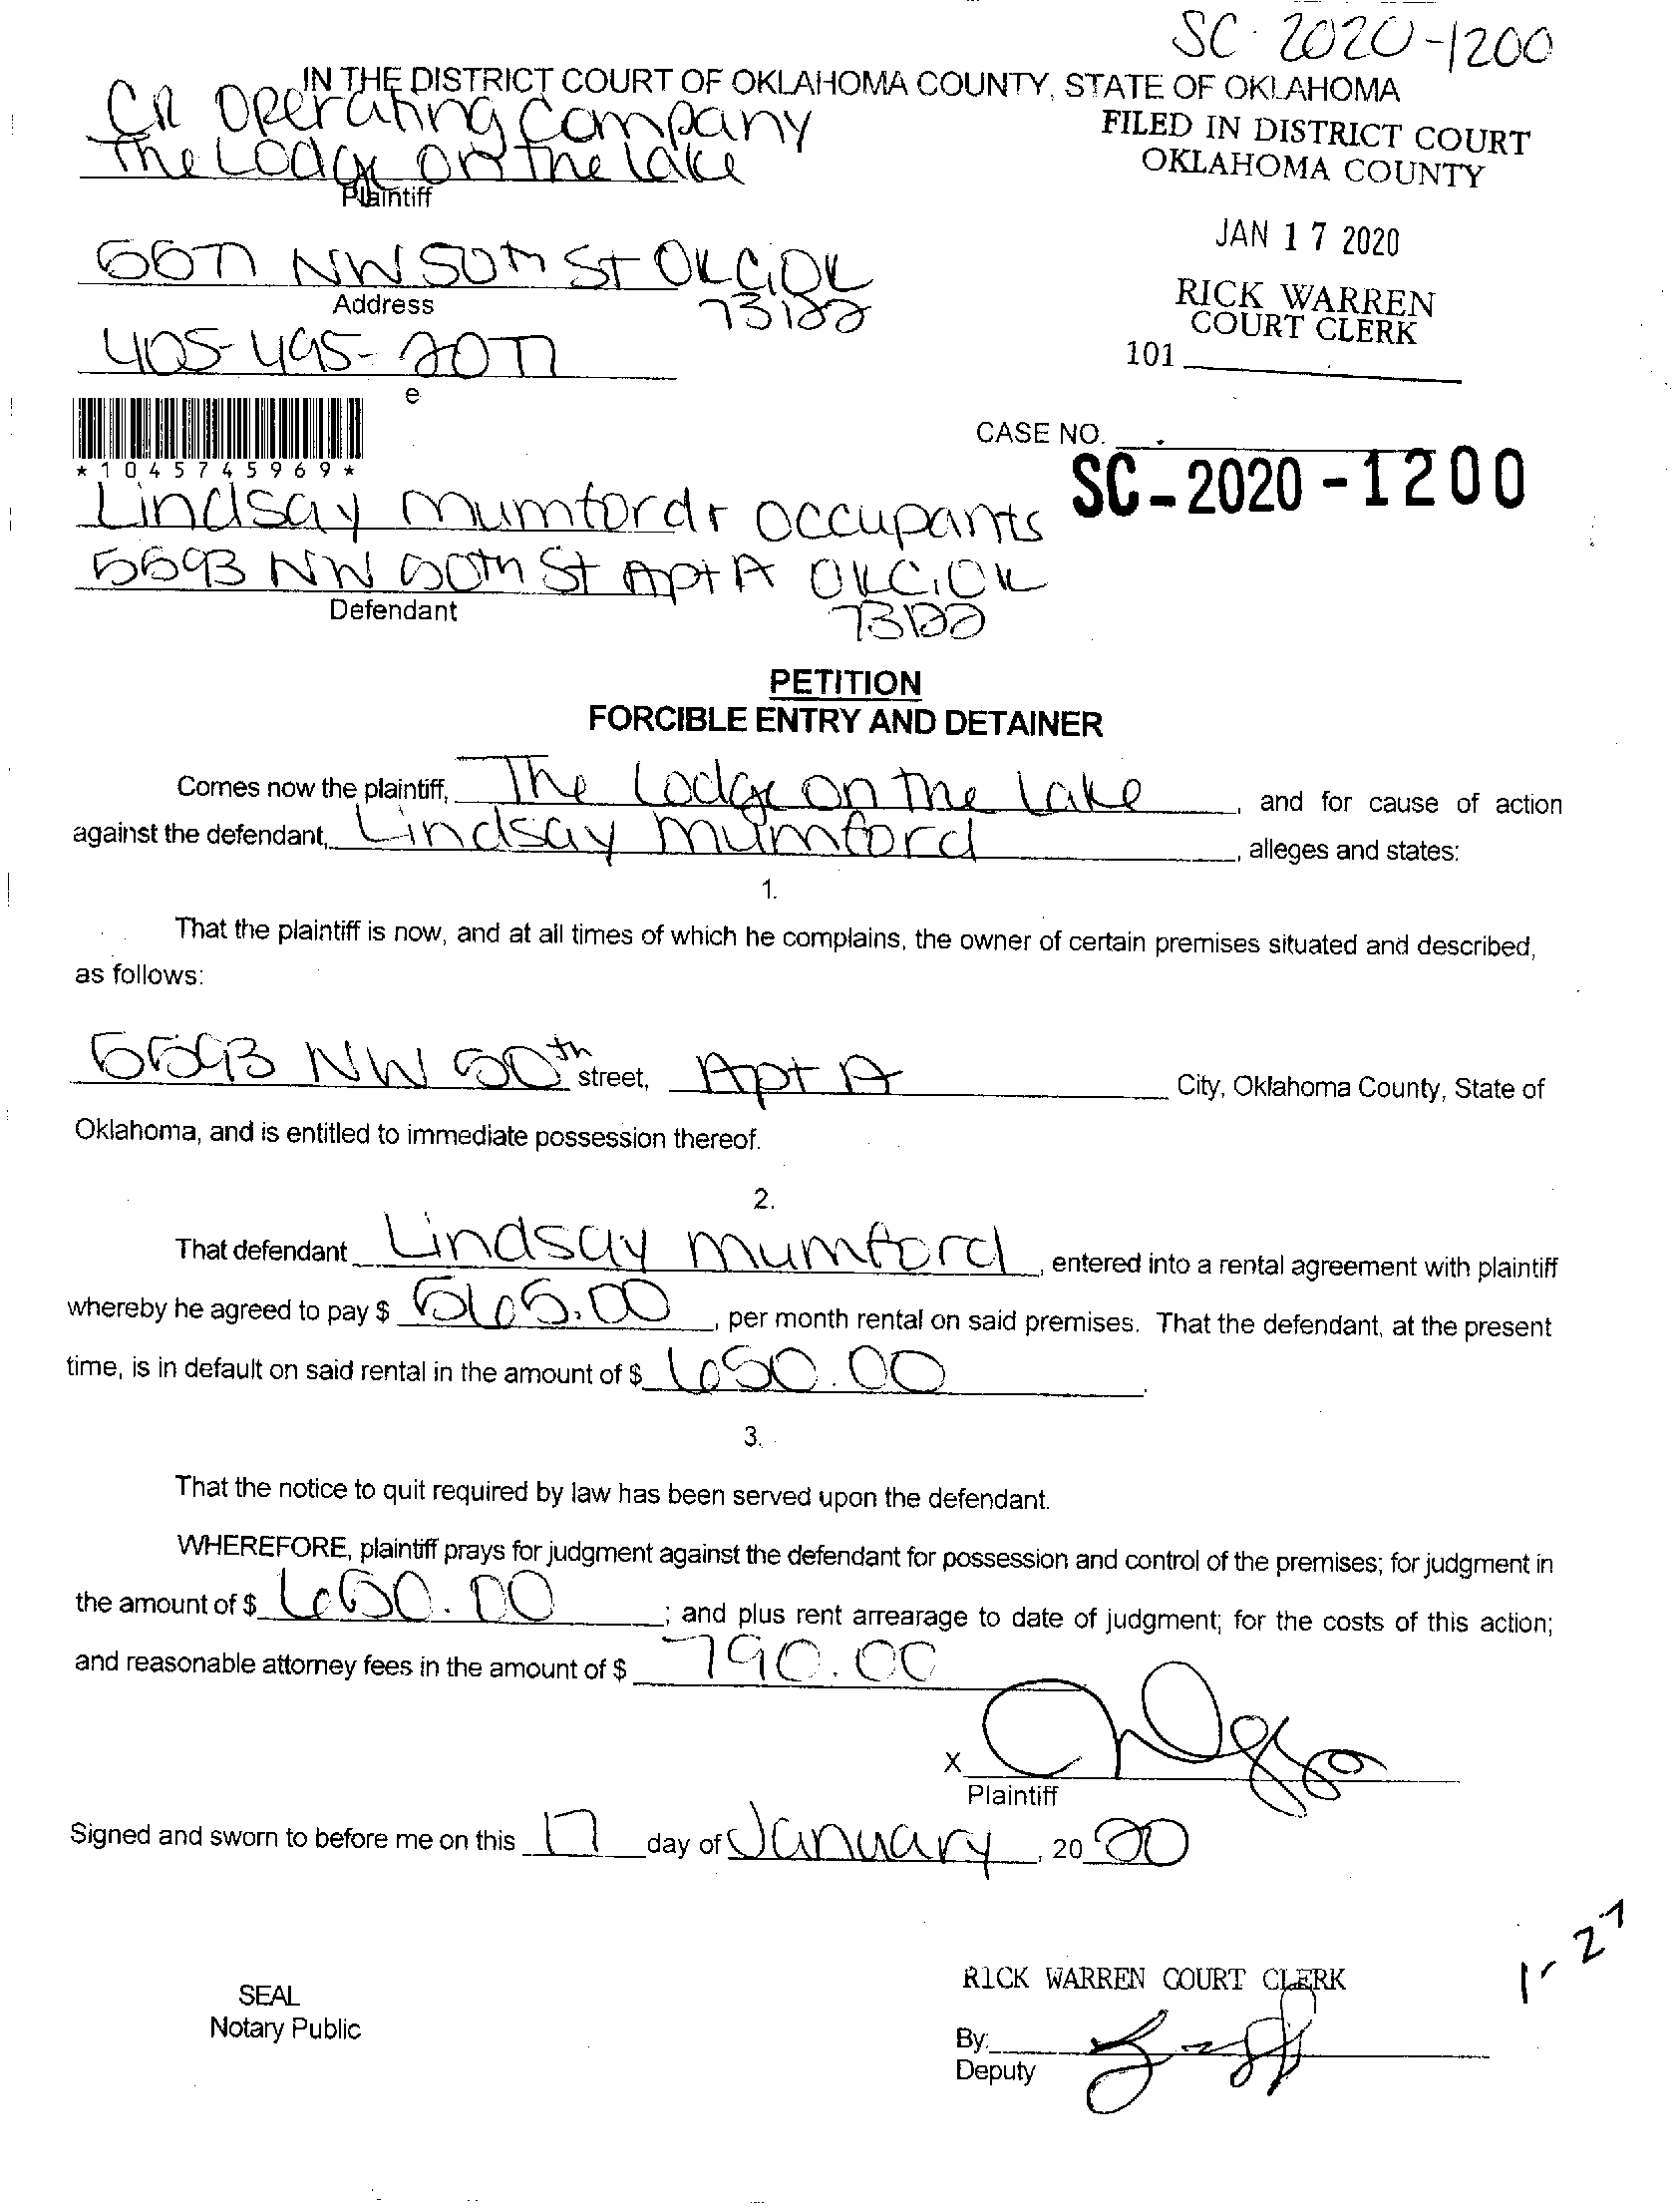 SC-2020-1200
IN THE DISTRICT COURT OF OKLAHOMA COUNTY, STATE OF OKLAHOMA
CR Operating Company
The Lodge on the Lake
Plaintiff
FILED IN DISTRICT COURT
OKLAHOMA COUNTY
JAN 17 2020
RICK WARREN
COURT CLERK
101
5577 NW 50th St OKC, OK
73122
Address
405-495-2077
e
*1045745969*
CASE NO.
SC-2020-1200
Lindsay Mumford + occupants
5593 NW 50th St Apt A OKC, OK
73122
Defendant
PETITION
FORCIBLE ENTRY AND DETAINER
Comes now the plaintiff, The Lodge on the Lake, and for cause of action
against the defendant, Lindsay Mumford, alleges and states:
1.
That the plaintiff is now, and at all times of which he complains, the owner of certain premises situated and described,
as follows:
5593 NW 50th street, Apt A City, Oklahoma County, State of
Oklahoma, and is entitled to immediate possession thereof.
2.
That defendant Lindsay Mumford, entered into a rental agreement with plaintiff
whereby he agreed to pay $ 565.00, per month rental on said premises. That the defendant, at the present
time, is in default on said rental in the amount of $ 650.00.
3.
That the notice to quit required by law has been served upon the defendant.
WHEREFORE, plaintiff prays for judgment against the defendant for possession and control of the premises; for judgment in
the amount of $ 650.00; and plus rent arrearage to date of judgment; for the costs of this action;
and reasonable attorney fees in the amount of $ 790.00
X
Plaintiff
Signed and sworn to before me on this 17 day of January, 2020
1-27
RICK WARREN COURT CLERK
SEAL
Notary Public
By:
Deputy